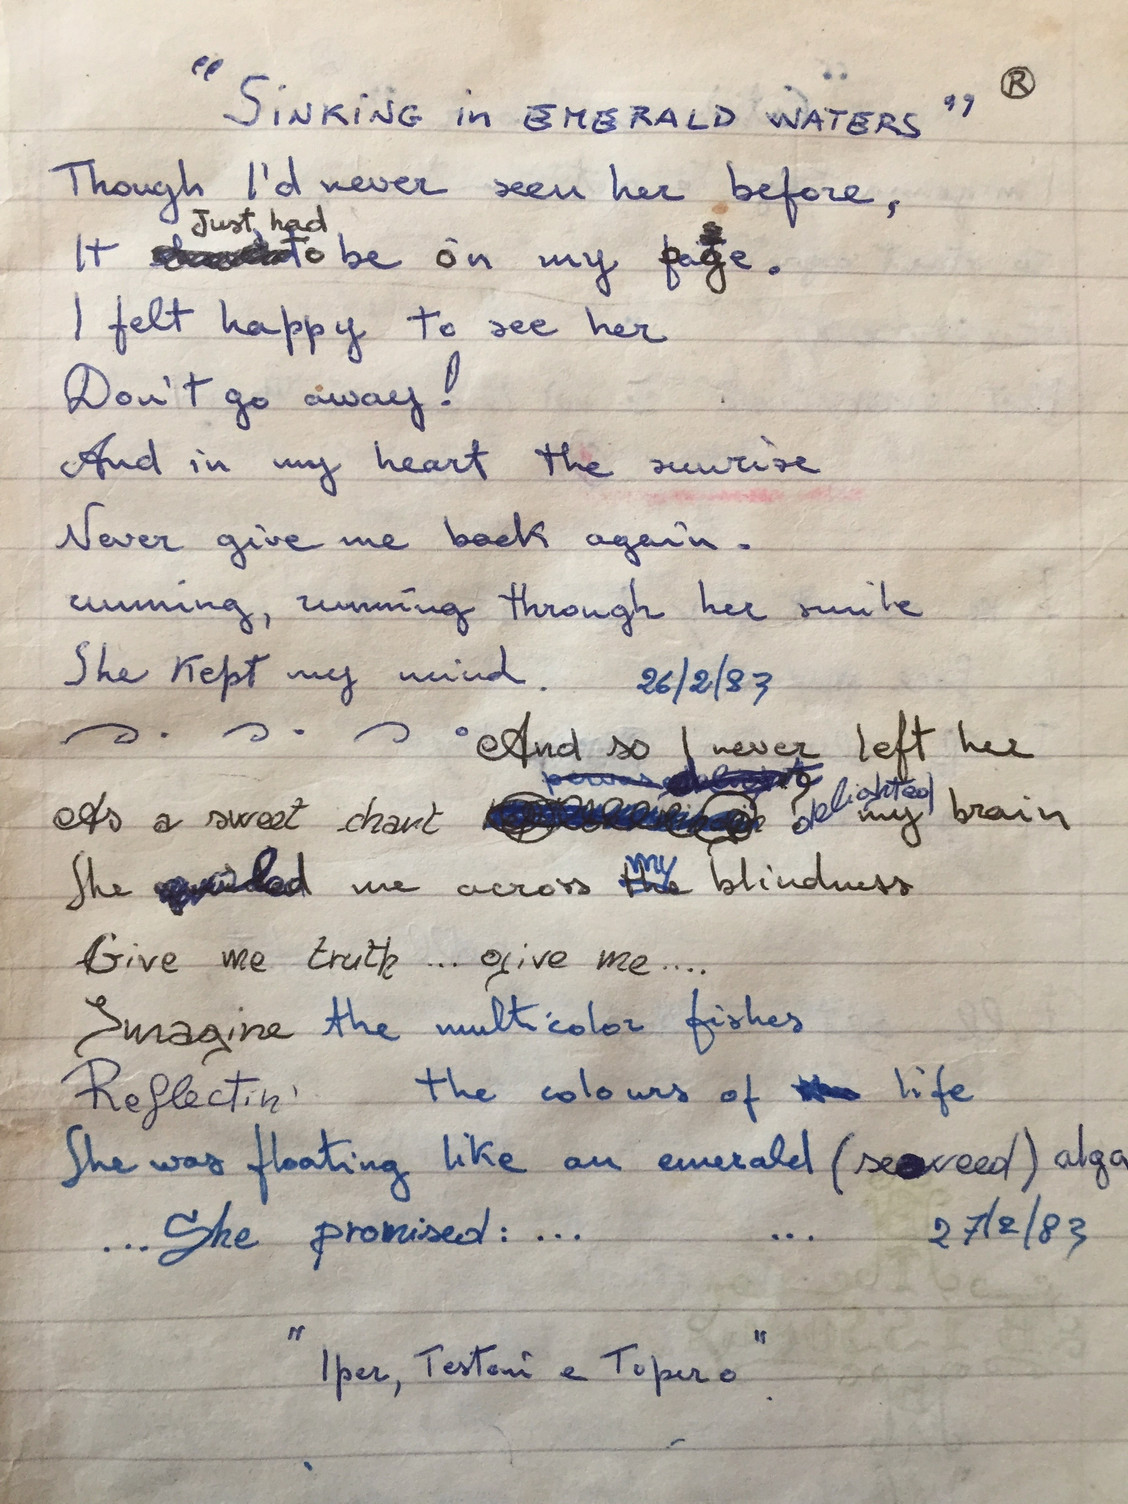 "Sinking in EMERALD WATERS" ®
Though I'd never seen her before,
It Just had to be on my page.
I felt happy to see her
Don't go away!
And in my heart the sunrise
Never give me back again.
running, running through her smile
She kept my mind. 26/2/83
And so I never left her
As a sweet chant delighted my brain
She me across my blindness
Give me truth ... give me....
Imagine the multicolor fishes
Reflectin' the colours of life
She was floating like an emerald (seaweed) alga
...She promised: ... ... 27/2/83
"Iper, Testoni e Topero".